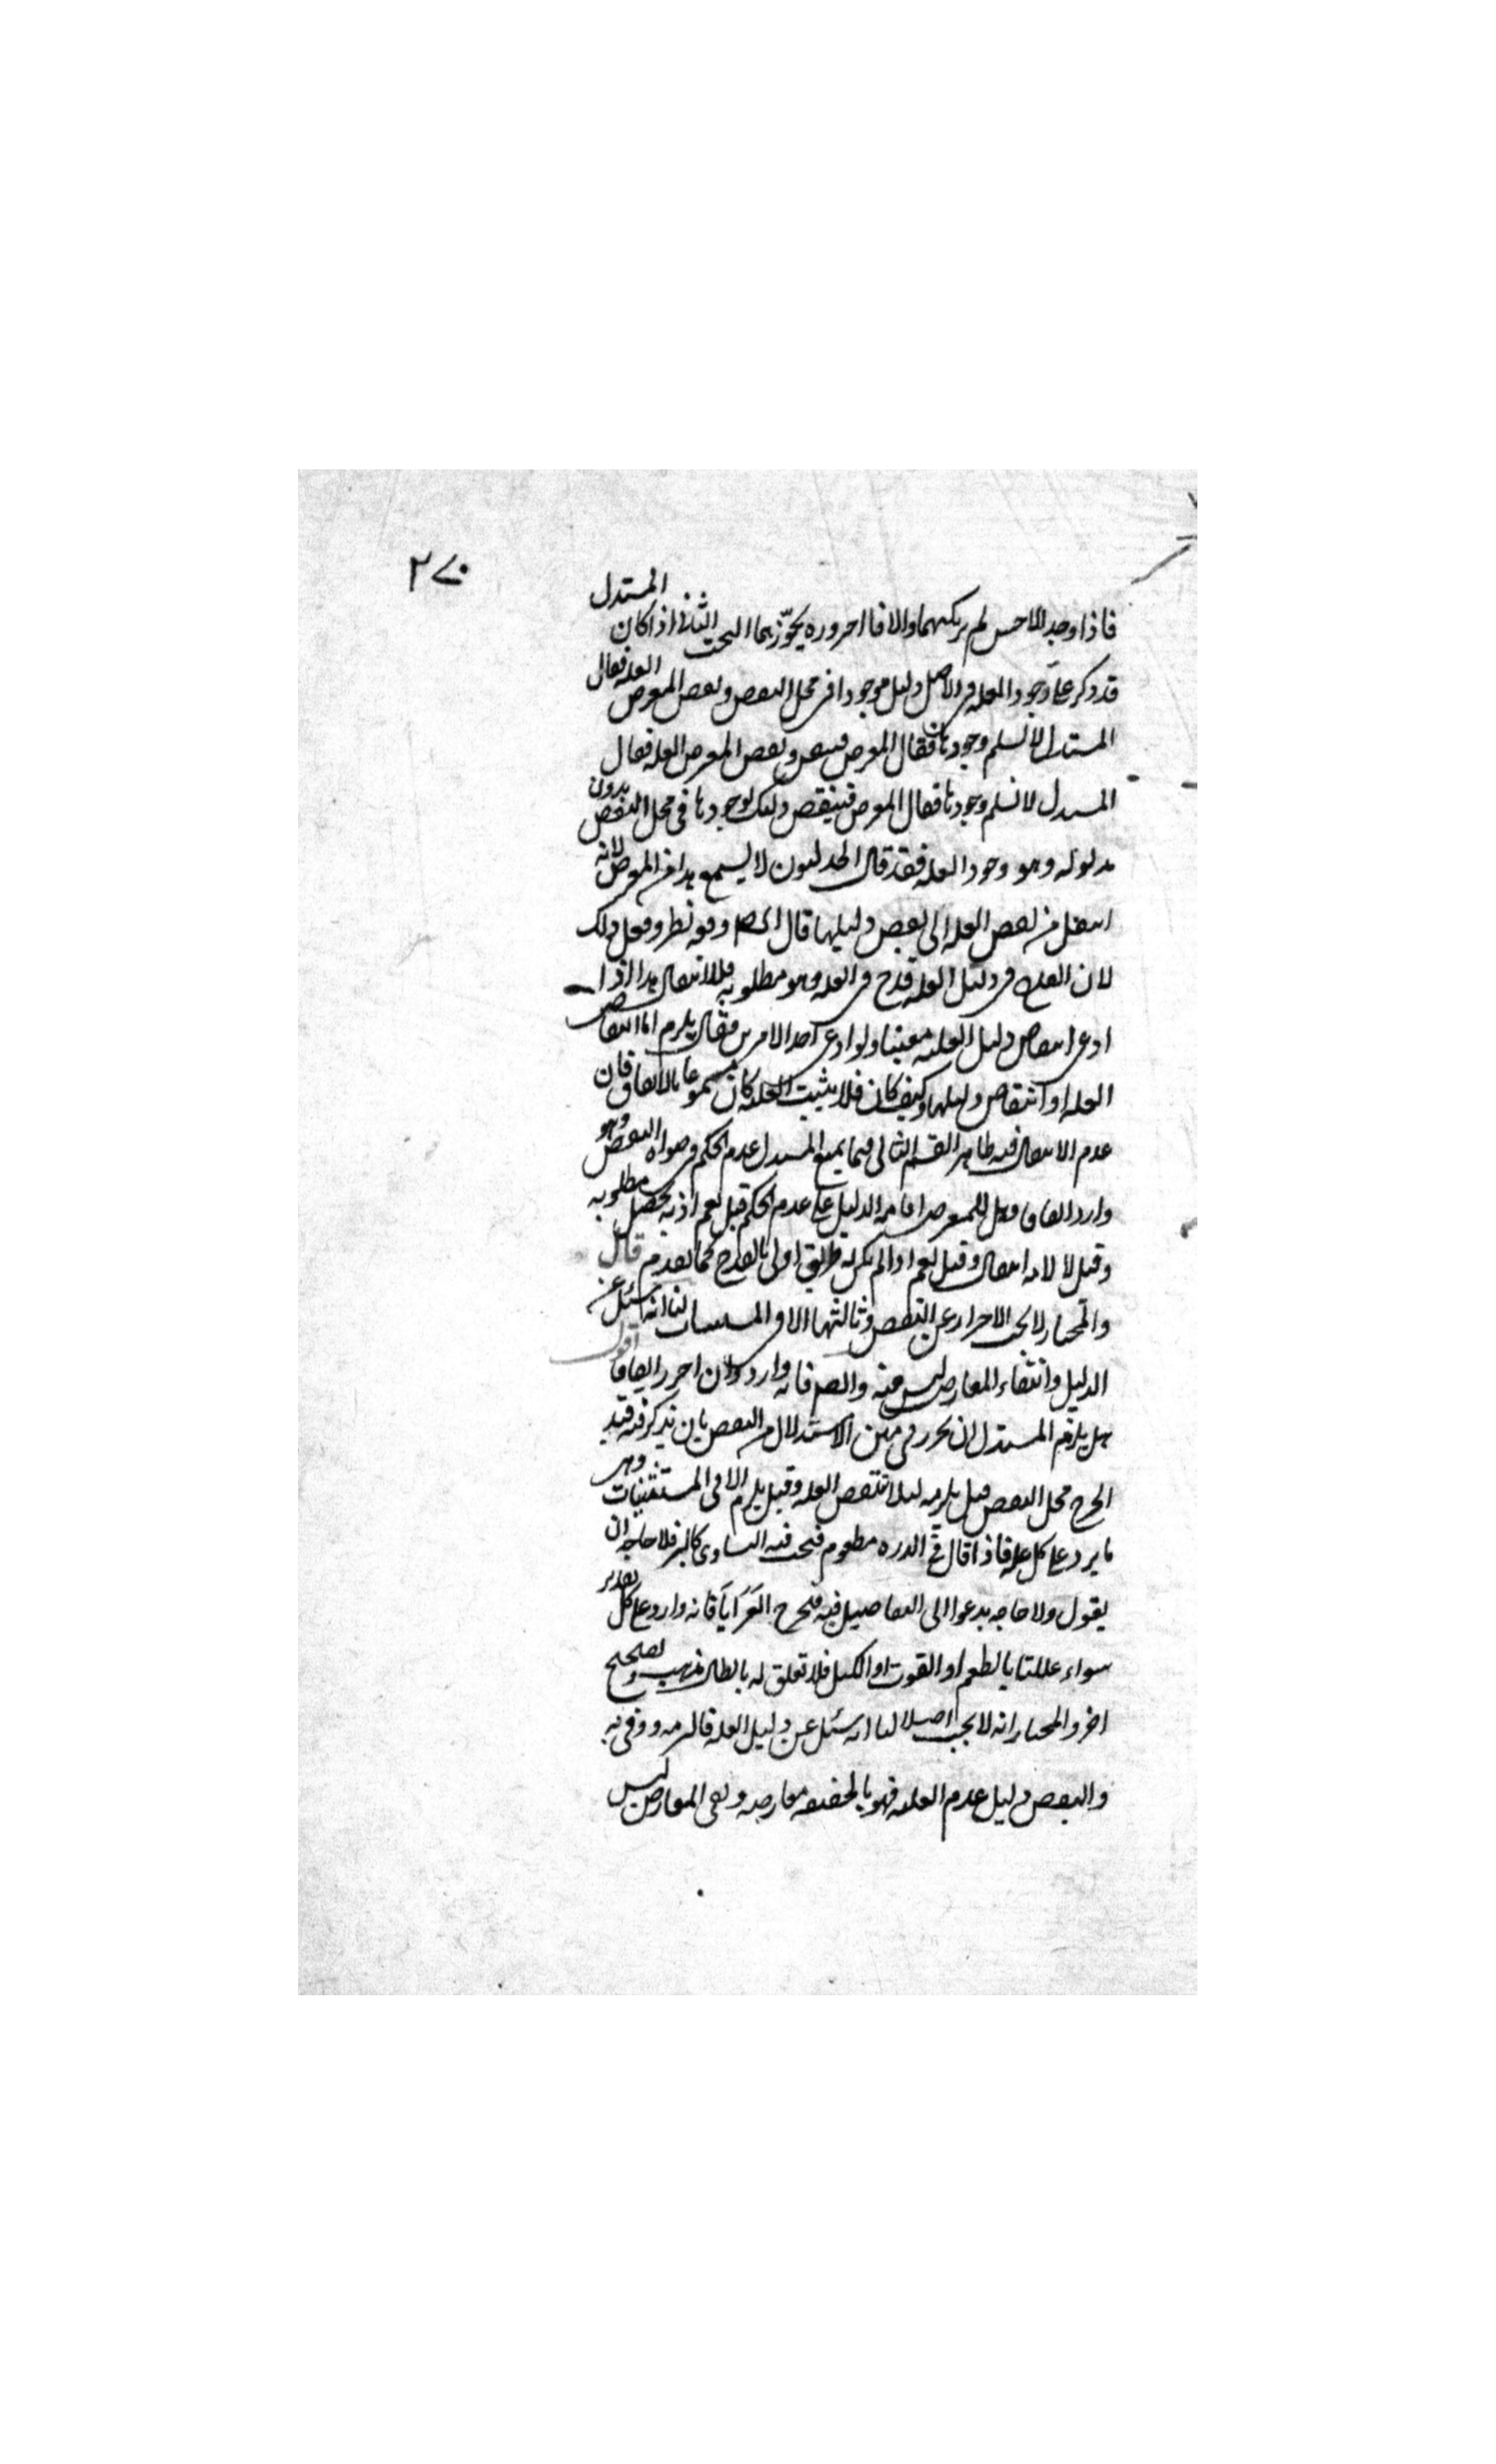 ٢٧٠
فاذا وجد الاحسن لم يرتكبهما والا فالضرورة يجوّزهما البحث الثاني اذا كان المستدل
قد ذكر على وجود العلة في الاصل دليل موجودا في محل النقض ونقض المعرض العلة فقال
المستدل لا نسلم وجودها فقال المعرض فينتقض ونقض المعرض العلة فقال
المستدل لا نسلم وجودها فقال المعرض فينتقض دليلك لوجودها في محل النقض بدون
مدلوله وهو وجود العلة فقد قال الجدليون لا يسمع هذا من المعرض لانه
انتقل من نقض العلة الى نقض دليلها قال المص وفيه نظر ولعل ذلك
لان القدح في دليل العلة قدح في العلة وهو مطلوبه فلا انتقال هذا اذا
ادعى انتقاض دليل العلية معينا ولو ادعى احد الامرين فقال يلزم اما انتقاض
العلة او انتقاض دليلها وكيف كان فلا يثبت العلية كان مسموعا بالاتفاق فان
عدم الانتقال فيه ظاهر القسم الثاني فيما يمنع المستدل عدم الحكم في صوره النقض وهو
وارد اتفاقا وهل للمعرض اقامة الدليل على عدم الحكم قيل نعم اذ به يحصل مطلوبه
وقيل لا لانه انتقال وقيل نعم اذا لم يكن له طريق اولى بالقدح كما تقدم قال
والمختار لا يجب الاحتراز عن النقض وثالثها الا في المستثنيات لنا انه سئل عن
الدليل وانتفاء المعارض ليس منه والصم فانه وارد وان احترز اتفاقا اقول
هل يلزم المستدل ان يحترز في متن الاستدلال من النقض بان يذكر فيه قيد
يخرج محل النقض قيل يلزمه لئلا تنتقض العلة وقيل يلزم الا في المستثنيات وهي
ما يرد على كل علة فاذا قال في الذره مطعوم فيجب فيه التساوي كالبر فلا حاجة ان
يقول ولا حاجه تدعوا الى التفاضيل فيه فيخرج العَرَايَا فانه وارد على كل تقدير
سواء عللنا بالطعم او القوت او الكيل فلا تعلق له بابطال مذهب وتصحيح
اخر والمختار انه لا يجب اصلا لنا انه سئل عن دليل العلة فالتزمه ووفى به
والنقض دليل عدم العلية فهو بالحقيقه معارضه ونفي المعارض ليس